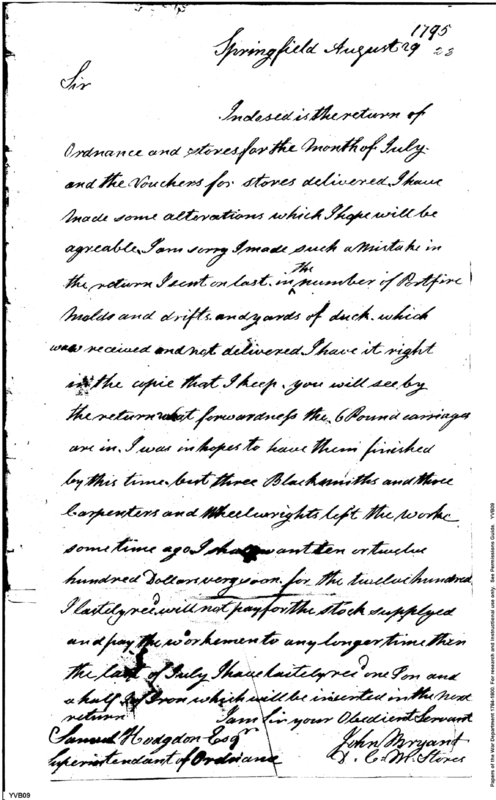 1795
Springfield August 29
23
Sir
Inclosed is the return of
Ordnance and stores for the Month of July.
and the Vouchers for stores delivered I have
Made some alterations which I hope will be
agreable. I am sorry I made such a Mistake in
the return I sent on last. in The number of Portfire
Molds and drifts. and yards of duck. which
was received and not delivered I have it right
in the copie that I keep. you will see by
the return what forwardness the 6 Pound carriages
are in. I was in hopes to have them finished
by this time. but three Blacksmiths and three
Carpenters and Wheelwrights left the worke
some time ago I shall want ten or twelve
hundred Dollars very soon. for the twelve hundred
I lately rec'd will not pay for the stock supplyed
and pay the workemen to any longer time then
the last of July I have laitely rec'd one Ton and
a half of Iron which will be inserted in the next
return
I am Sir your Obedient Servant
Samuel Hodgdon Esqr
John Bryant
Superintendant of Ordnance
D. C. M. Stores
YVB09
Papers of the War Department 1784-1800. For research and instructional use only. See Permissions Guide. YVB09